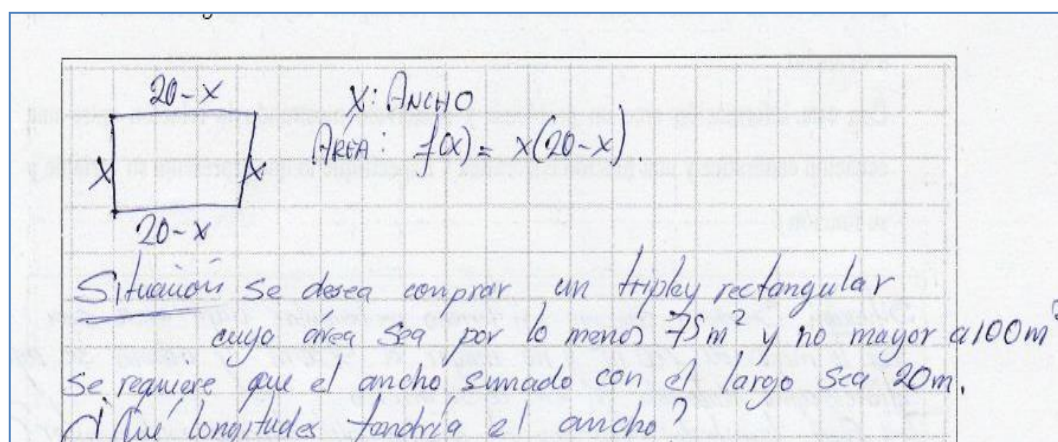 20-x
x: ANCHO
ÁREA: f(x) = x(20-x).
x x
20-x
Situación Se desea comprar un triplay rectangular
cuyo área sea por lo menos 75m² y no mayor a 100m²
Se requiere que el ancho sumado con el largo sea 20m.
¿Qué longitudes tendría el ancho?